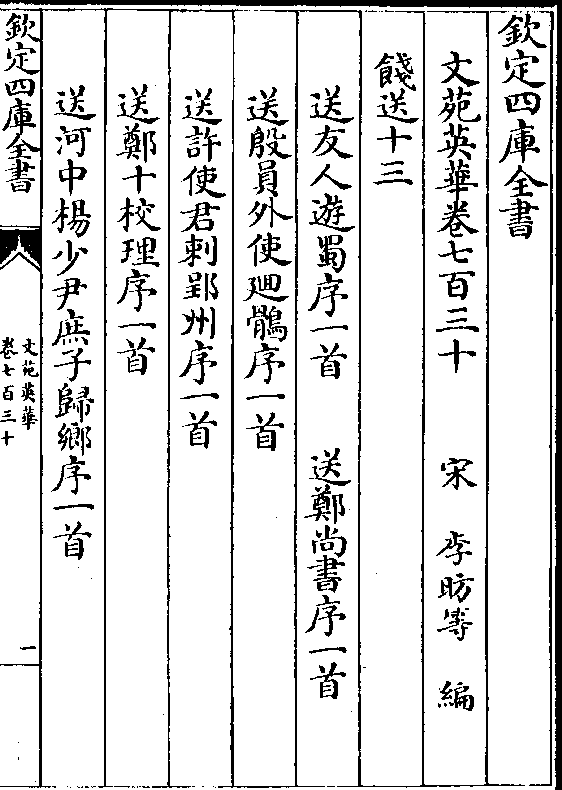 欽定四庫全書
文苑英華卷七百三十　宋　李昉等　編
餞送十三
送友人遊蜀序一首　送鄭尚書序一首
送殷員外使廻鶻序一首
送許使君刺郢州序一首
送鄭十校理序一首
送河中楊少尹庶子歸鄉序一首
欽定四庫全書
文苑英華
卷七百三十
一